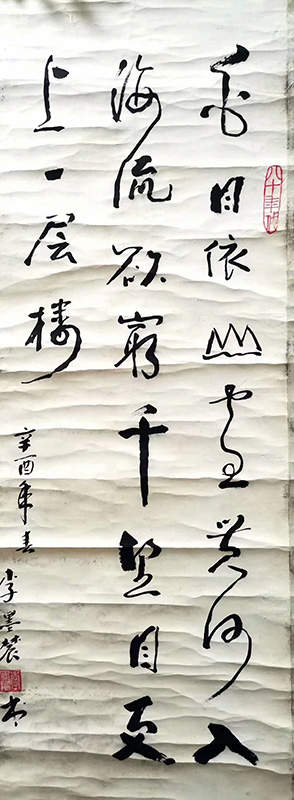 白日依山尽黄河入
海流欲窮千里目更
上一层楼
辛酉年春
李墨農书
八十年代